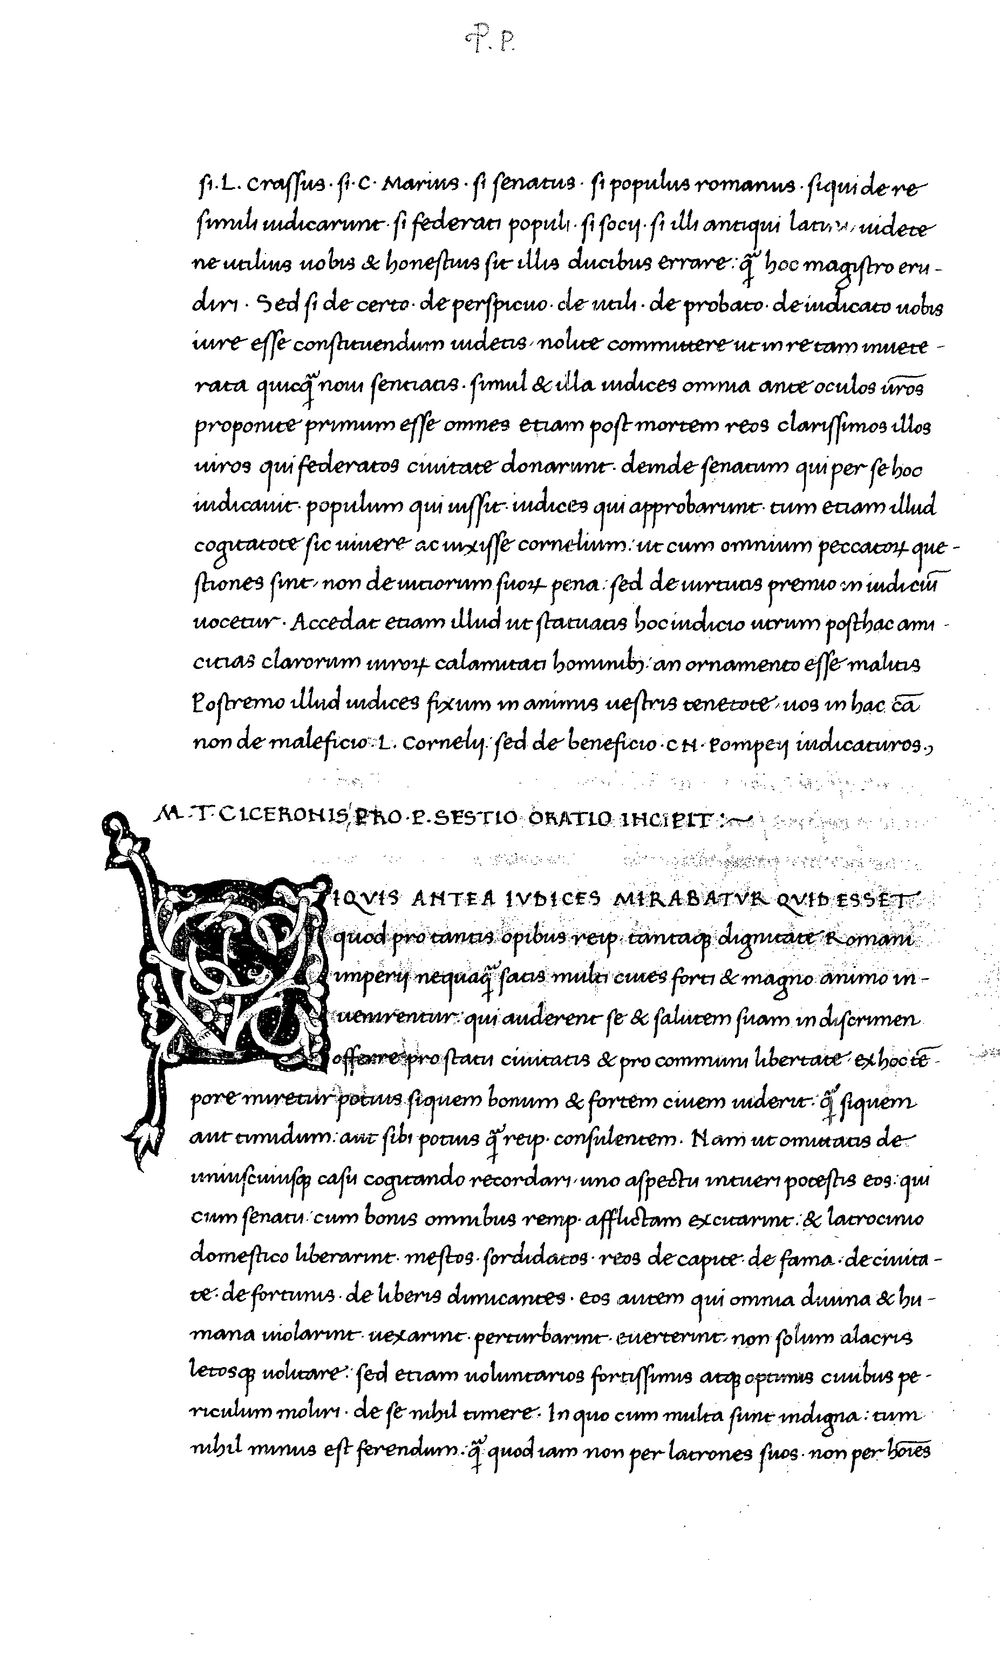 P. P.
si. L. Crassus · si · C · Marius · si senatus · si populus romanus · siqui de re
simili iudicarunt · si federati populi · si socij · si illi antiqui latini, uidete
ne utilius uobis & honestius sit illis ducibus errare: q̃ hoc magistro eru-
diri · Sed si de certo · de perspicuo · de utili · de probato · de iudicato uobis
iure esse constituendum uidetis, nolite committere ut in re tam inuete-
rata quicq̃ noui sentiatis · simul & illa iudices omnia ante oculos ur̄os
proponite primum esse omnes etiam post mortem reos clarissimos illos
uiros qui federatos ciuitate donarunt · deinde senatum qui per se hoc
iudicauit · populum qui iussit · iudices qui approbarunt · tum etiam illud
cogitatote sic uiuere ac uixisse cornelium: ut cum omnium peccatoꝝ que-
stiones sint, non de uitiorum suoꝝ pena: sed de uirtutis premio in iudiciū
uocetur · Accedat etiam illud ut statuatis hoc iudicio utrum posthac ami-
citias clarorum uiroꝝ calamitati hominibꝫ: an ornamento esse malitis
Postremo illud iudices fixum in animis uestris tenetote, uos in hac cā
non de maleficio · L · Cornelij: sed de beneficio · CN · Pompeij iudicaturos.,
M · T · CICERONIS PRO · P · SESTIO ORATIO INCIPIT :~
IQVIS ANTEA IVDICES MIRABATVR QVID ESSET
quod pro tantis opibus reip. tantaqꝫ dignitate Romani
imperij nequaq̃ satis multi ciues forti & magno animo in-
uenirentur: qui auderent se & salutem suam in discrimen
offerre pro statu ciuitatis & pro communi libertate · ex hoc tē-
pore miretur potius siquem bonum & fortem ciuem uiderit: q̃ siquem
aut timidum: aut sibi potius q̃ reip. consulentem. Nam ut omittatis de
uniuscuiusqꝫ casu cogitando recordari, uno aspectu intueri potestis eos: qui
cum senatu: cum bonis omnibus remp. afflictam excitarint: & latrocinio
domestico liberarint · mestos · sordidatos · reos de capite · de fama · de ciuita-
te · de fortunis · de liberis dimicantes · eos autem qui omnia diuina & hu-
mana uiolarint · uexarint · perturbarint · euerterint, non solum alacris
letosqꝫ uolitare: sed etiam uoluntarios fortissimis atqꝫ optimis ciuibus pe-
riculum moliri · de se nihil timere. In quo cum multa sunt indigna: tum
nihil minus est ferendum: q̃ quod iam non per latrones suos · non per hoīes